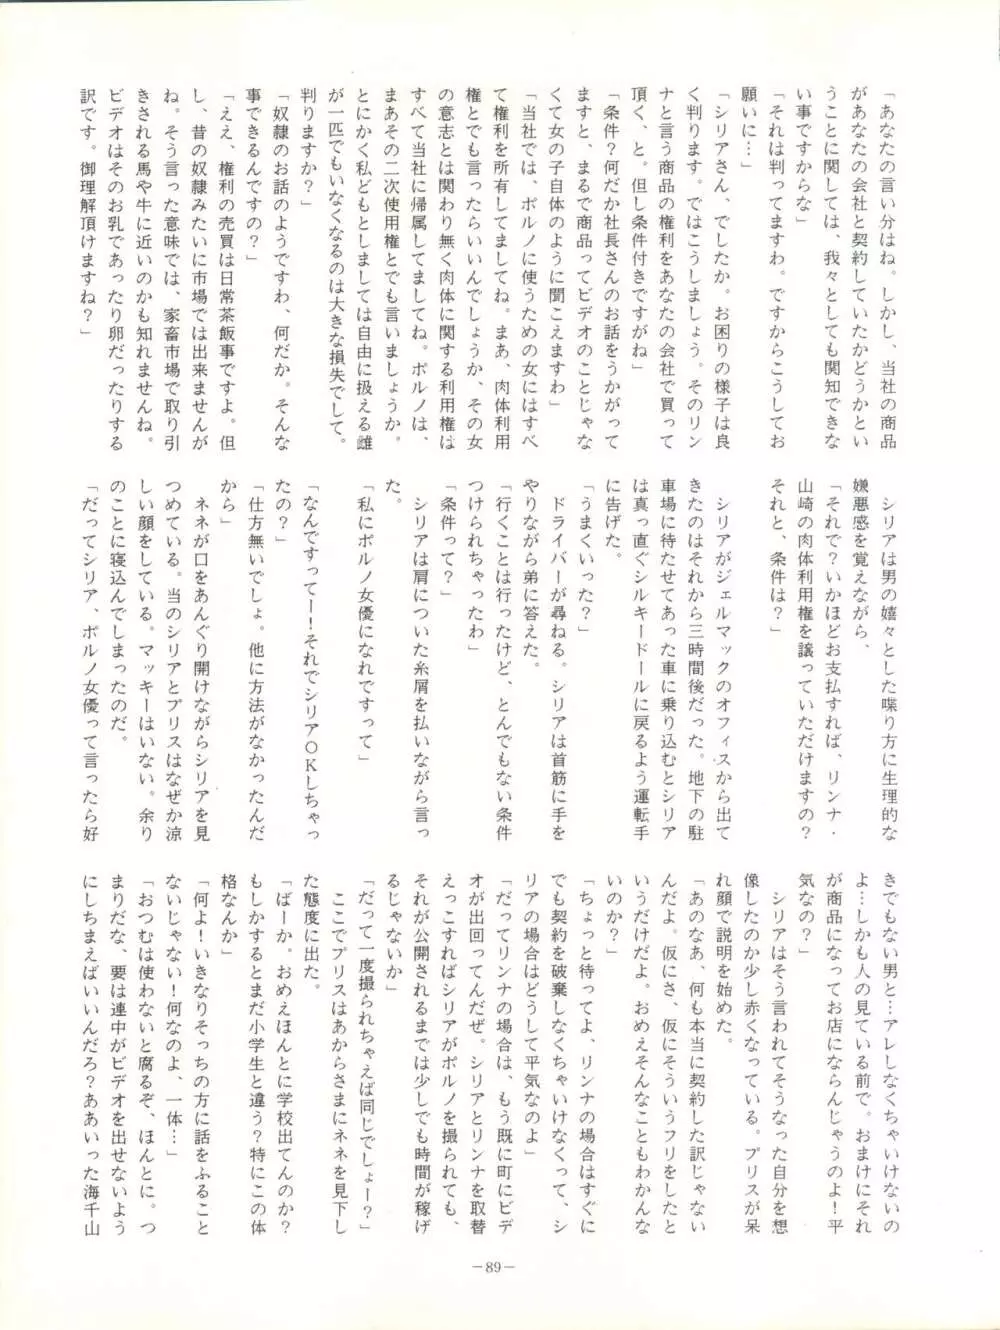 「あなたの言い分はね。しかし、当社の商品
があなたの会社と契約していたかどうかとい
うことに関しては、我々としても関知できな
い事ですからな」
「それは判ってますわ。ですからこうしてお
願いに…」
「シリアさん、でしたか。お困りの様子は良
く判ります。ではこうしましょう。そのリン
ナと言う商品の権利をあなたの会社で買って
頂く、と。但し条件付きですがね」
「条件？何だか社長さんのお話をうかがって
ますと、まるで商品ってビデオのことじゃな
くて女の子自体のように聞こえますわ」
「当社では、ポルノに使うための女にはすべ
て権利を所有してましてね。まあ、肉体利用
権とでも言ったらいいんでしょうか、その女
の意志とは関わり無く肉体に関する利用権は
すべて当社に帰属してましてね。ポルノは、
まあその二次使用権とでも言いましょうか。
とにかく私どもとしましては自由に扱える雌
が一匹でもいなくなるのは大きな損失でして。
判りますか？」
「奴隷のお話のようですわ、何だか。そんな
事できるんですの？」
「ええ、権利の売買は日常茶飯事ですよ。但
し、昔の奴隷みたいに市場では出来ませんが
ね。そう言った意味では、家畜市場で取り引
きされる馬や牛に近いのかも知れませんね。
ビデオはそのお乳であったり卵だったりする
訳です。御理解頂けますね？」
シリアは男の嬉々とした喋り方に生理的な
嫌悪感を覚えながら、
「それで？いかほどお支払すれば、リンナ・
山崎の肉体利用権を譲っていただけますの？
それと、条件は？」
シリアがジェルマックのオフィスから出て
きたのはそれから三時間後だった。地下の駐
車場に待たせてあった車に乗り込むとシリア
は真っ直ぐシルキードールに戻るよう運転手
に告げた。
「うまくいった？」
ドライバーが尋ねる。シリアは首筋に手を
やりながら弟に答えた。
「行くことは行ったけど、とんでもない条件
つけられちゃったわ」
「条件って？」
シリアは肩についた糸屑を払いながら言っ
た。
「私にポルノ女優になれですって」
「なんですってー！それでシリアＯＫしちゃっ
たの？」
「仕方無いでしょ。他に方法がなかったんだ
から」
ネネが口をあんぐり開けながらシリアを見
つめている。当のシリアとプリスはなぜか涼
しい顔をしている。マッキーはいない。余り
のことに寝込んでしまったのだ。
「だってシリア、ポルノ女優って言ったら好
きでもない男と…アレしなくちゃいけないの
よ…しかも人の見ている前で。おまけにそれ
が商品になってお店にならんじゃうのよ！平
気なの？」
シリアはそう言われてそうなった自分を想
像したのか少し赤くなっている。プリスが呆
れ顔で説明を始めた。
「あのなあ、何も本当に契約した訳じゃない
んだよ。仮にさ、仮にそういうフリをしたと
いうだけだよ。おめえそんなこともわかんな
いのか？」
「ちょっと待ってよ、リンナの場合はすぐに
でも契約を破棄しなくちゃいけなくって、シ
リアの場合はどうして平気なのよ」
「だってリンナの場合は、もう既に町にビデ
オが出回ってんだぜ。シリアとリンナを取替
えっこすればシリアがポルノを撮られても、
それが公開されるまでは少しでも時間が稼げ
るじゃないか」
「だって一度撮られちゃえば同じでしょー？」
ここでプリスはあからさまにネネを見下し
た態度に出た。
「ばーか。おめえほんとに学校出てんのか？
もしかするとまだ小学生と違う？特にこの体
格なんか」
「何よ！いきなりそっちの方に話をふること
ないじゃない！何なのよ、一体…」
「おつむは使わないと腐るぞ、ほんとに。つ
まりだな、要は連中がビデオを出せないよう
にしちまえばいいんだろ？ああいった海千山
－89－